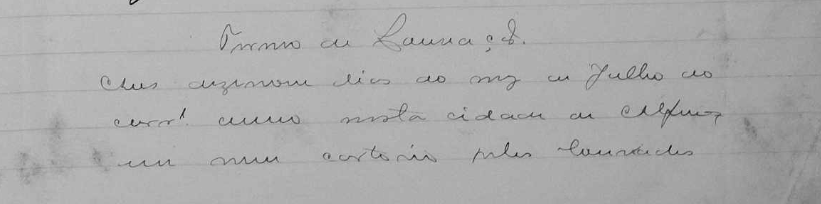 Termo de Louvação.
Aos dezenove dias do mez de Julho do
corrᵗ anno nesta cidade de
em meu cartorio pelos louvados